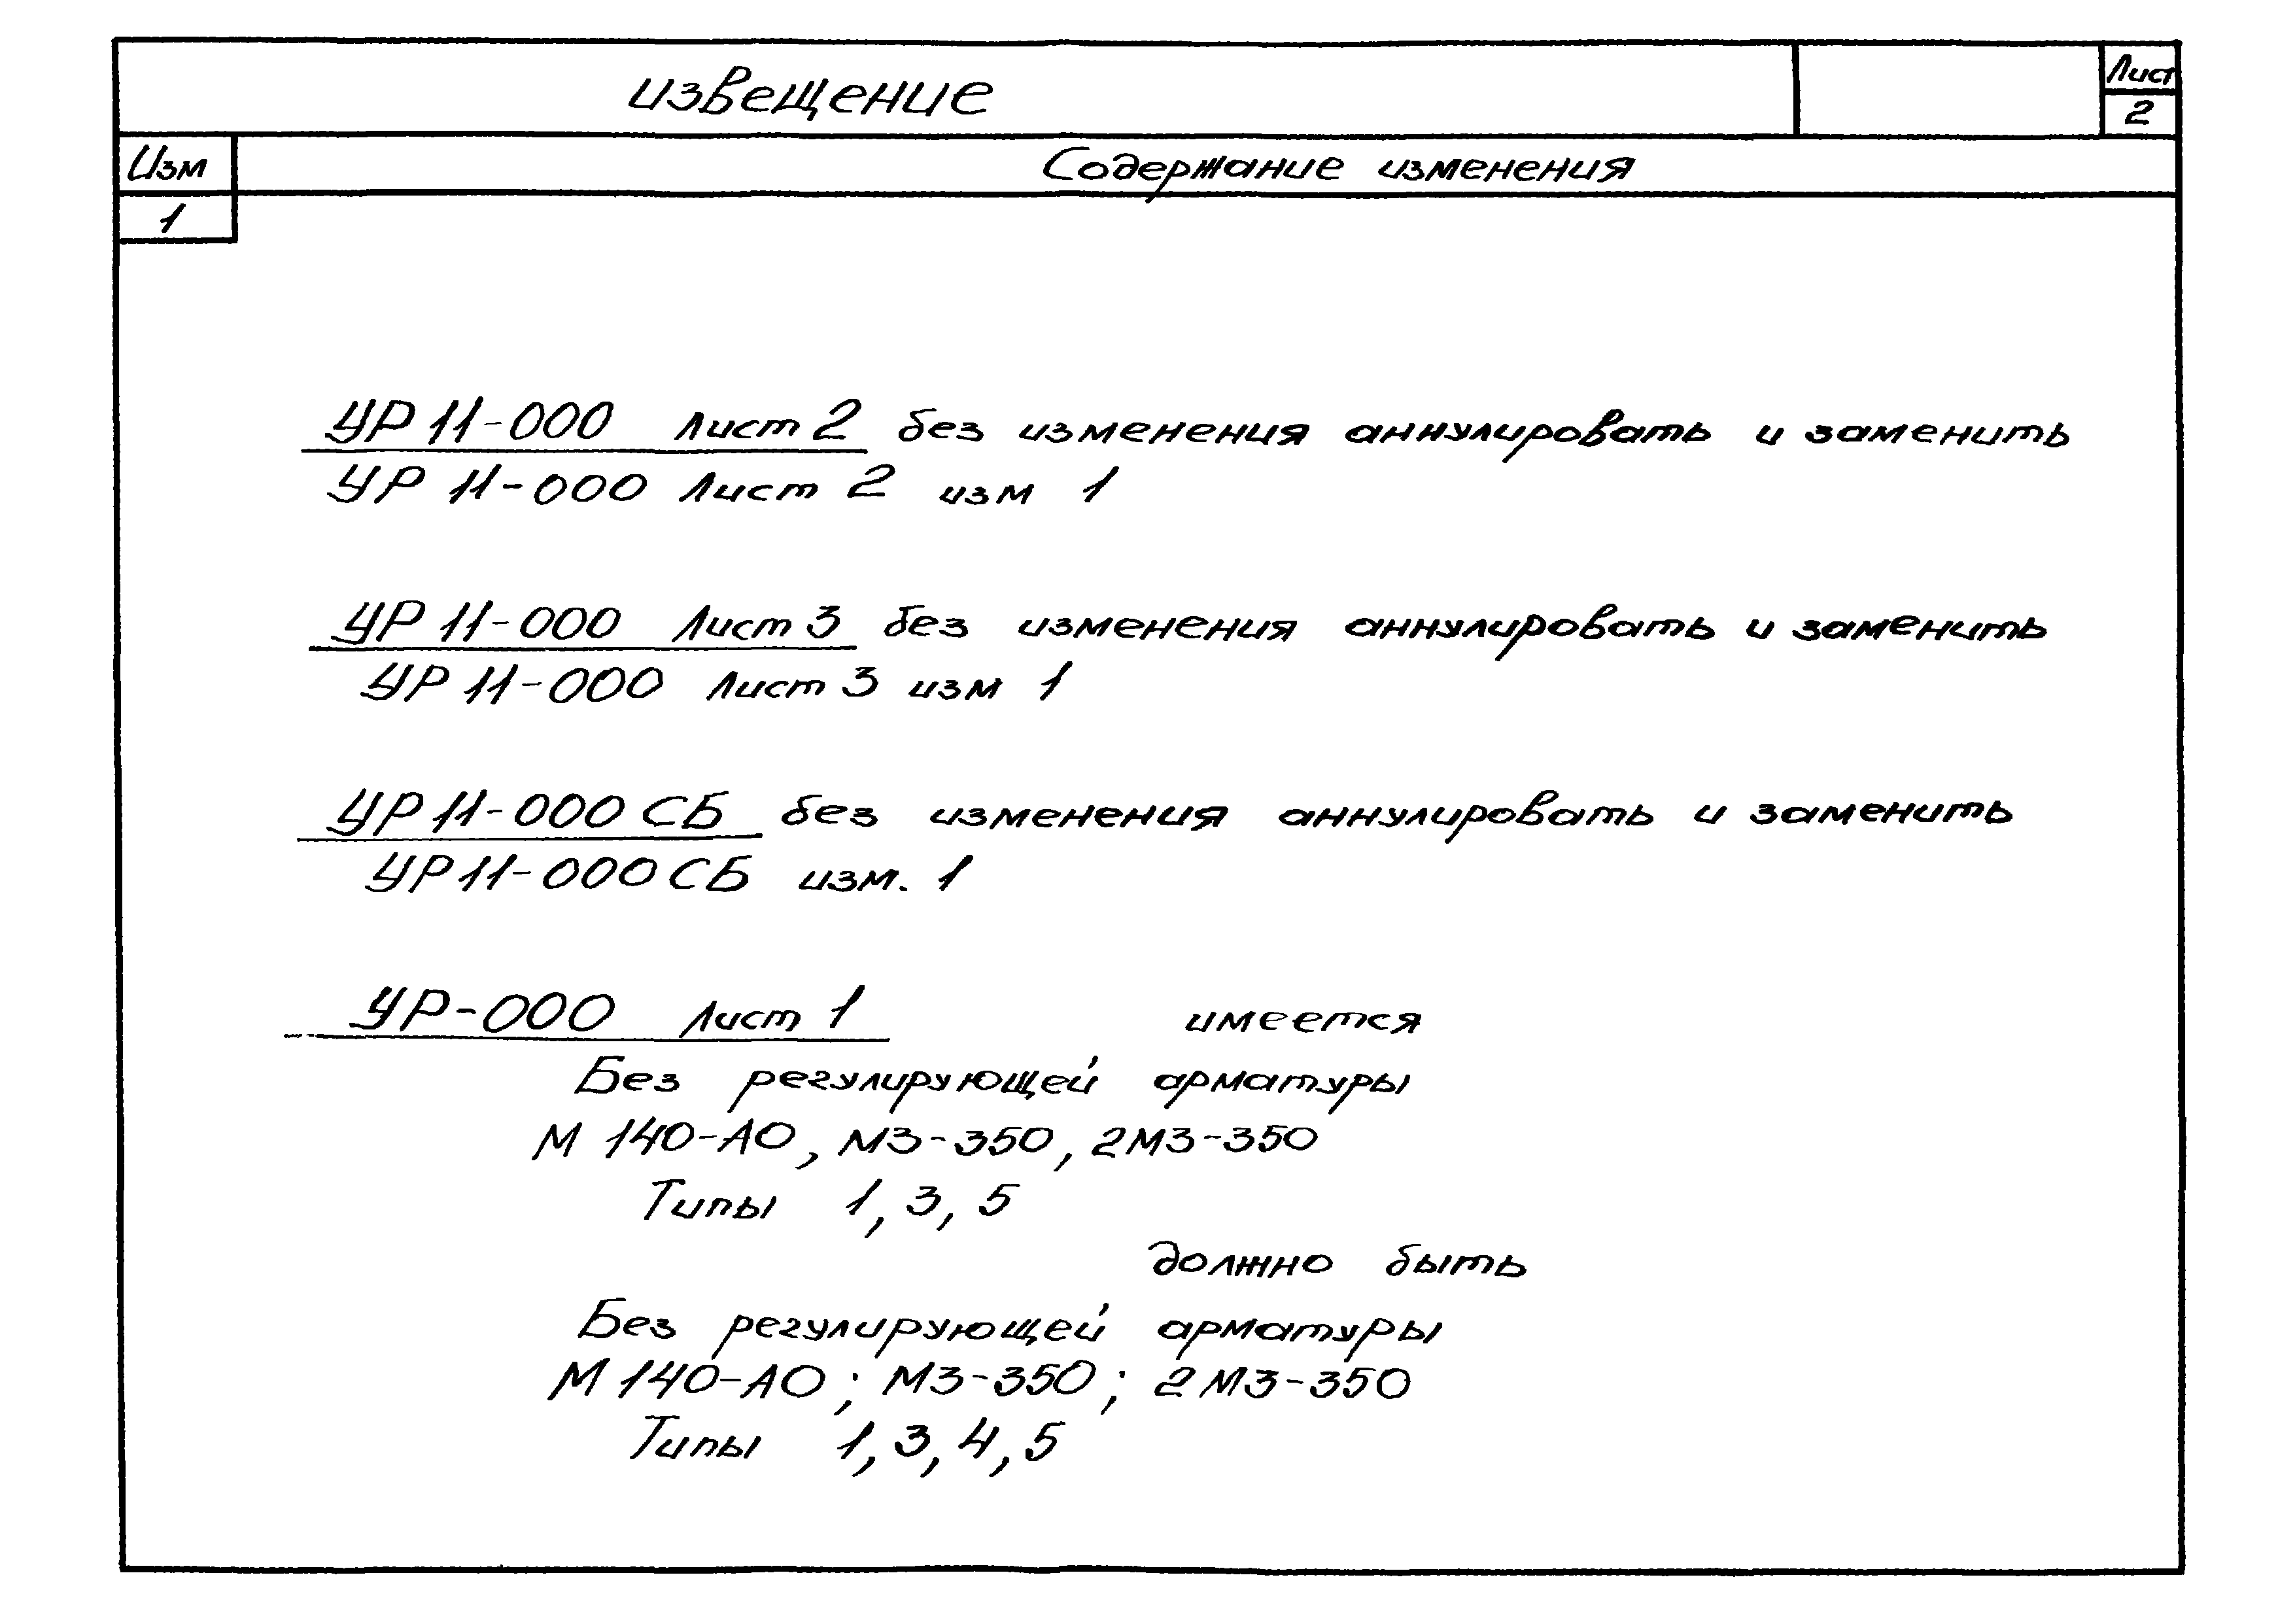 извещение
Лист
2
Изм
Содержание изменения
1
УР 11-000 Лист 2 без изменения аннулировать и заменить
УР 11-000 Лист 2 изм 1
УР 11-000 Лист 3 без изменения аннулировать и заменить
УР 11-000 Лист 3 изм 1
УР 11-000 СБ без изменения аннулировать и заменить
УР 11-000 СБ изм. 1
УР-000 Лист 1 имеется
Без регулирующей арматуры
М 140-АО, МЗ-350, 2МЗ-350
Типы 1, 3, 5
должно быть
Без регулирующей арматуры
М 140-АО; МЗ-350; 2 МЗ-350
Типы 1, 3, 4, 5